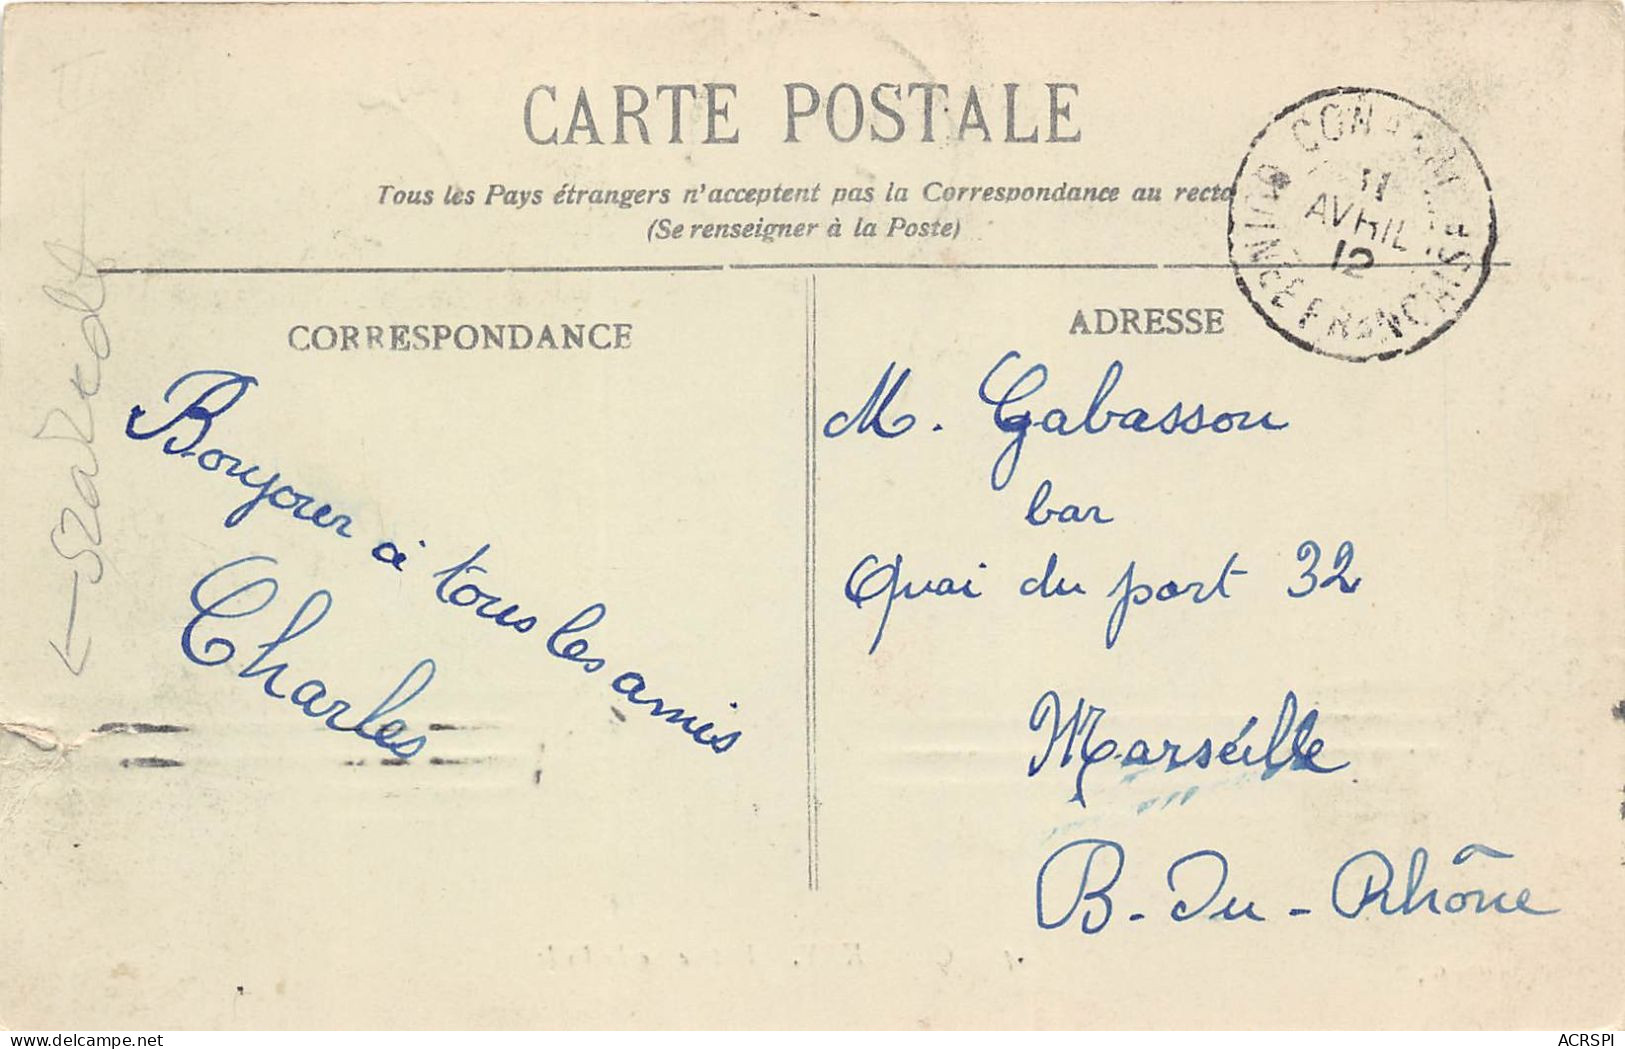 CARTE POSTALE
Tous les Pays étrangers n'acceptent pas la Correspondance au recto
(Se renseigner à la Poste)
CONAKRY
11
AVRIL
12
GUINÉE FRANÇAISE
CORRESPONDANCE
Bonjour à tous les amis
Charles
ADRESSE
M. Gabasson
bar
Quai du port 32
Marseille
B-Du-Rhône
delcampe.net
ACRSPI